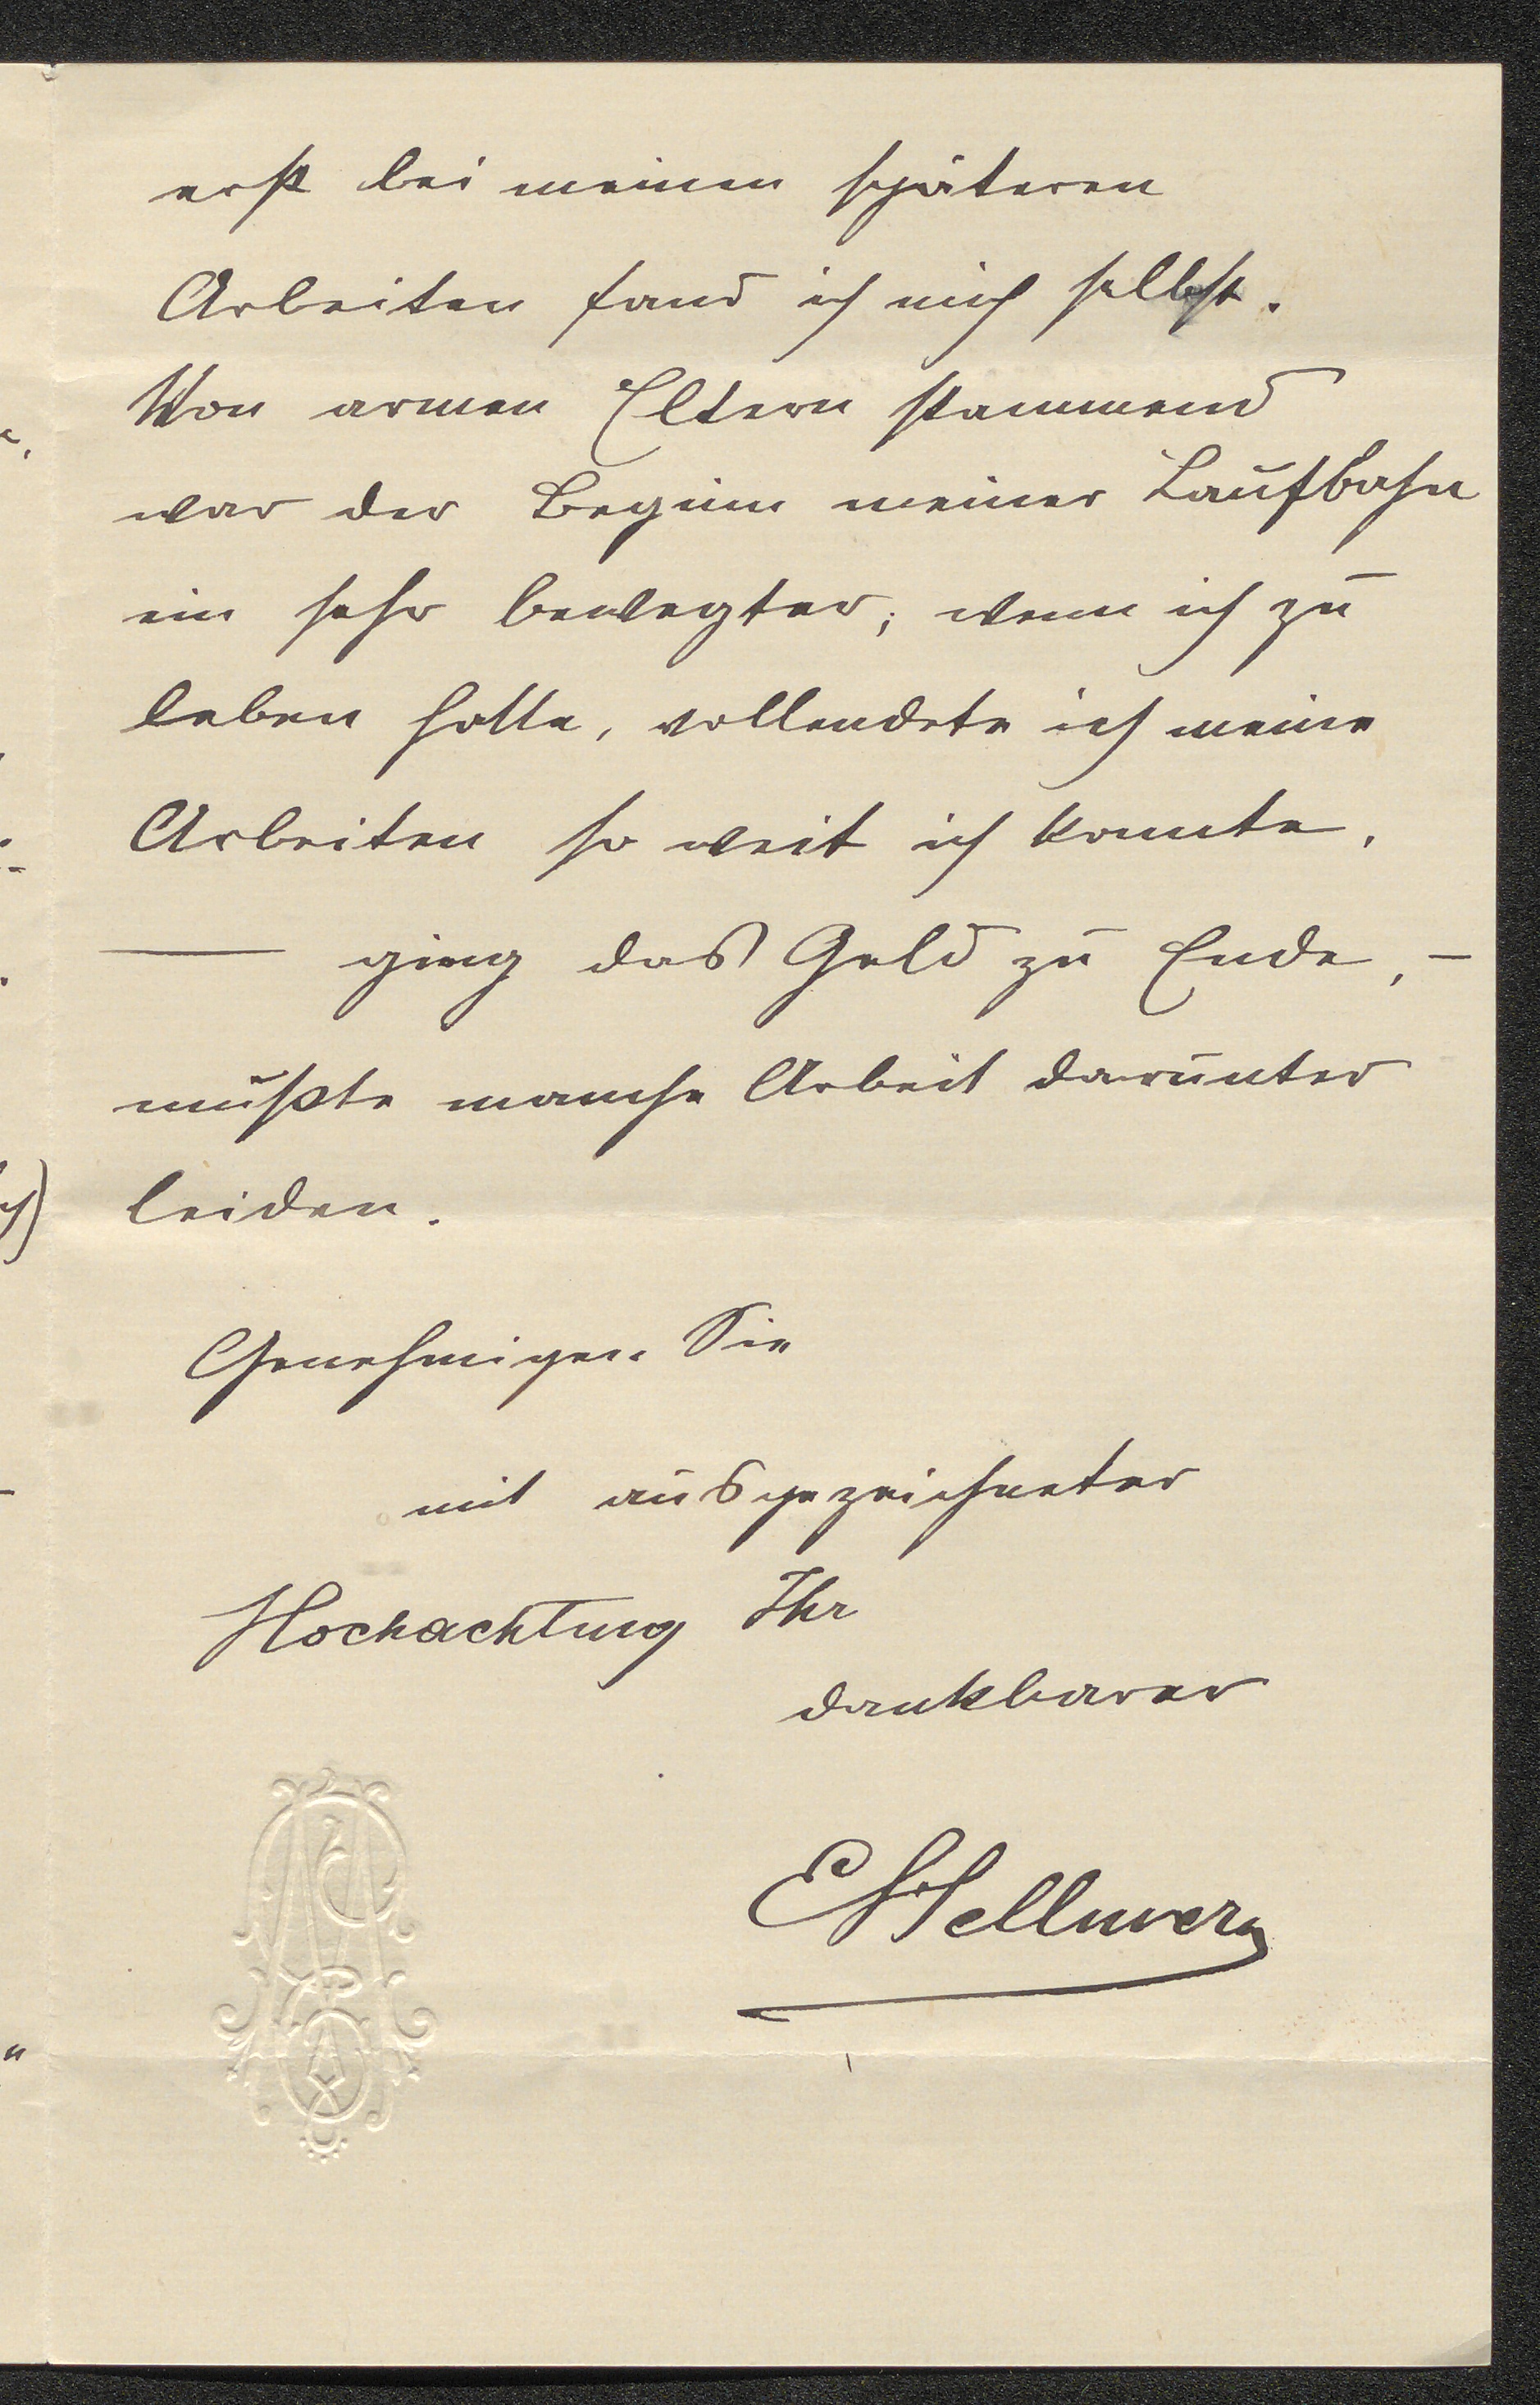 erst bei meinen späteren
Arbeiten fand ich mich selbst.
Von armen Eltern stammend
war der Beginn meiner Laufbahn
ein sehr bewegter; wenn ich zu
leben hatte, vollendete ich meine
Arbeiten so weit ich konnte,
— ging das Geld zu Ende, –
mußte manche Arbeit darunter
leiden.
Genehmigen Sie
mit ausgezeichneter
Hochachtung Ihr
dankbarer